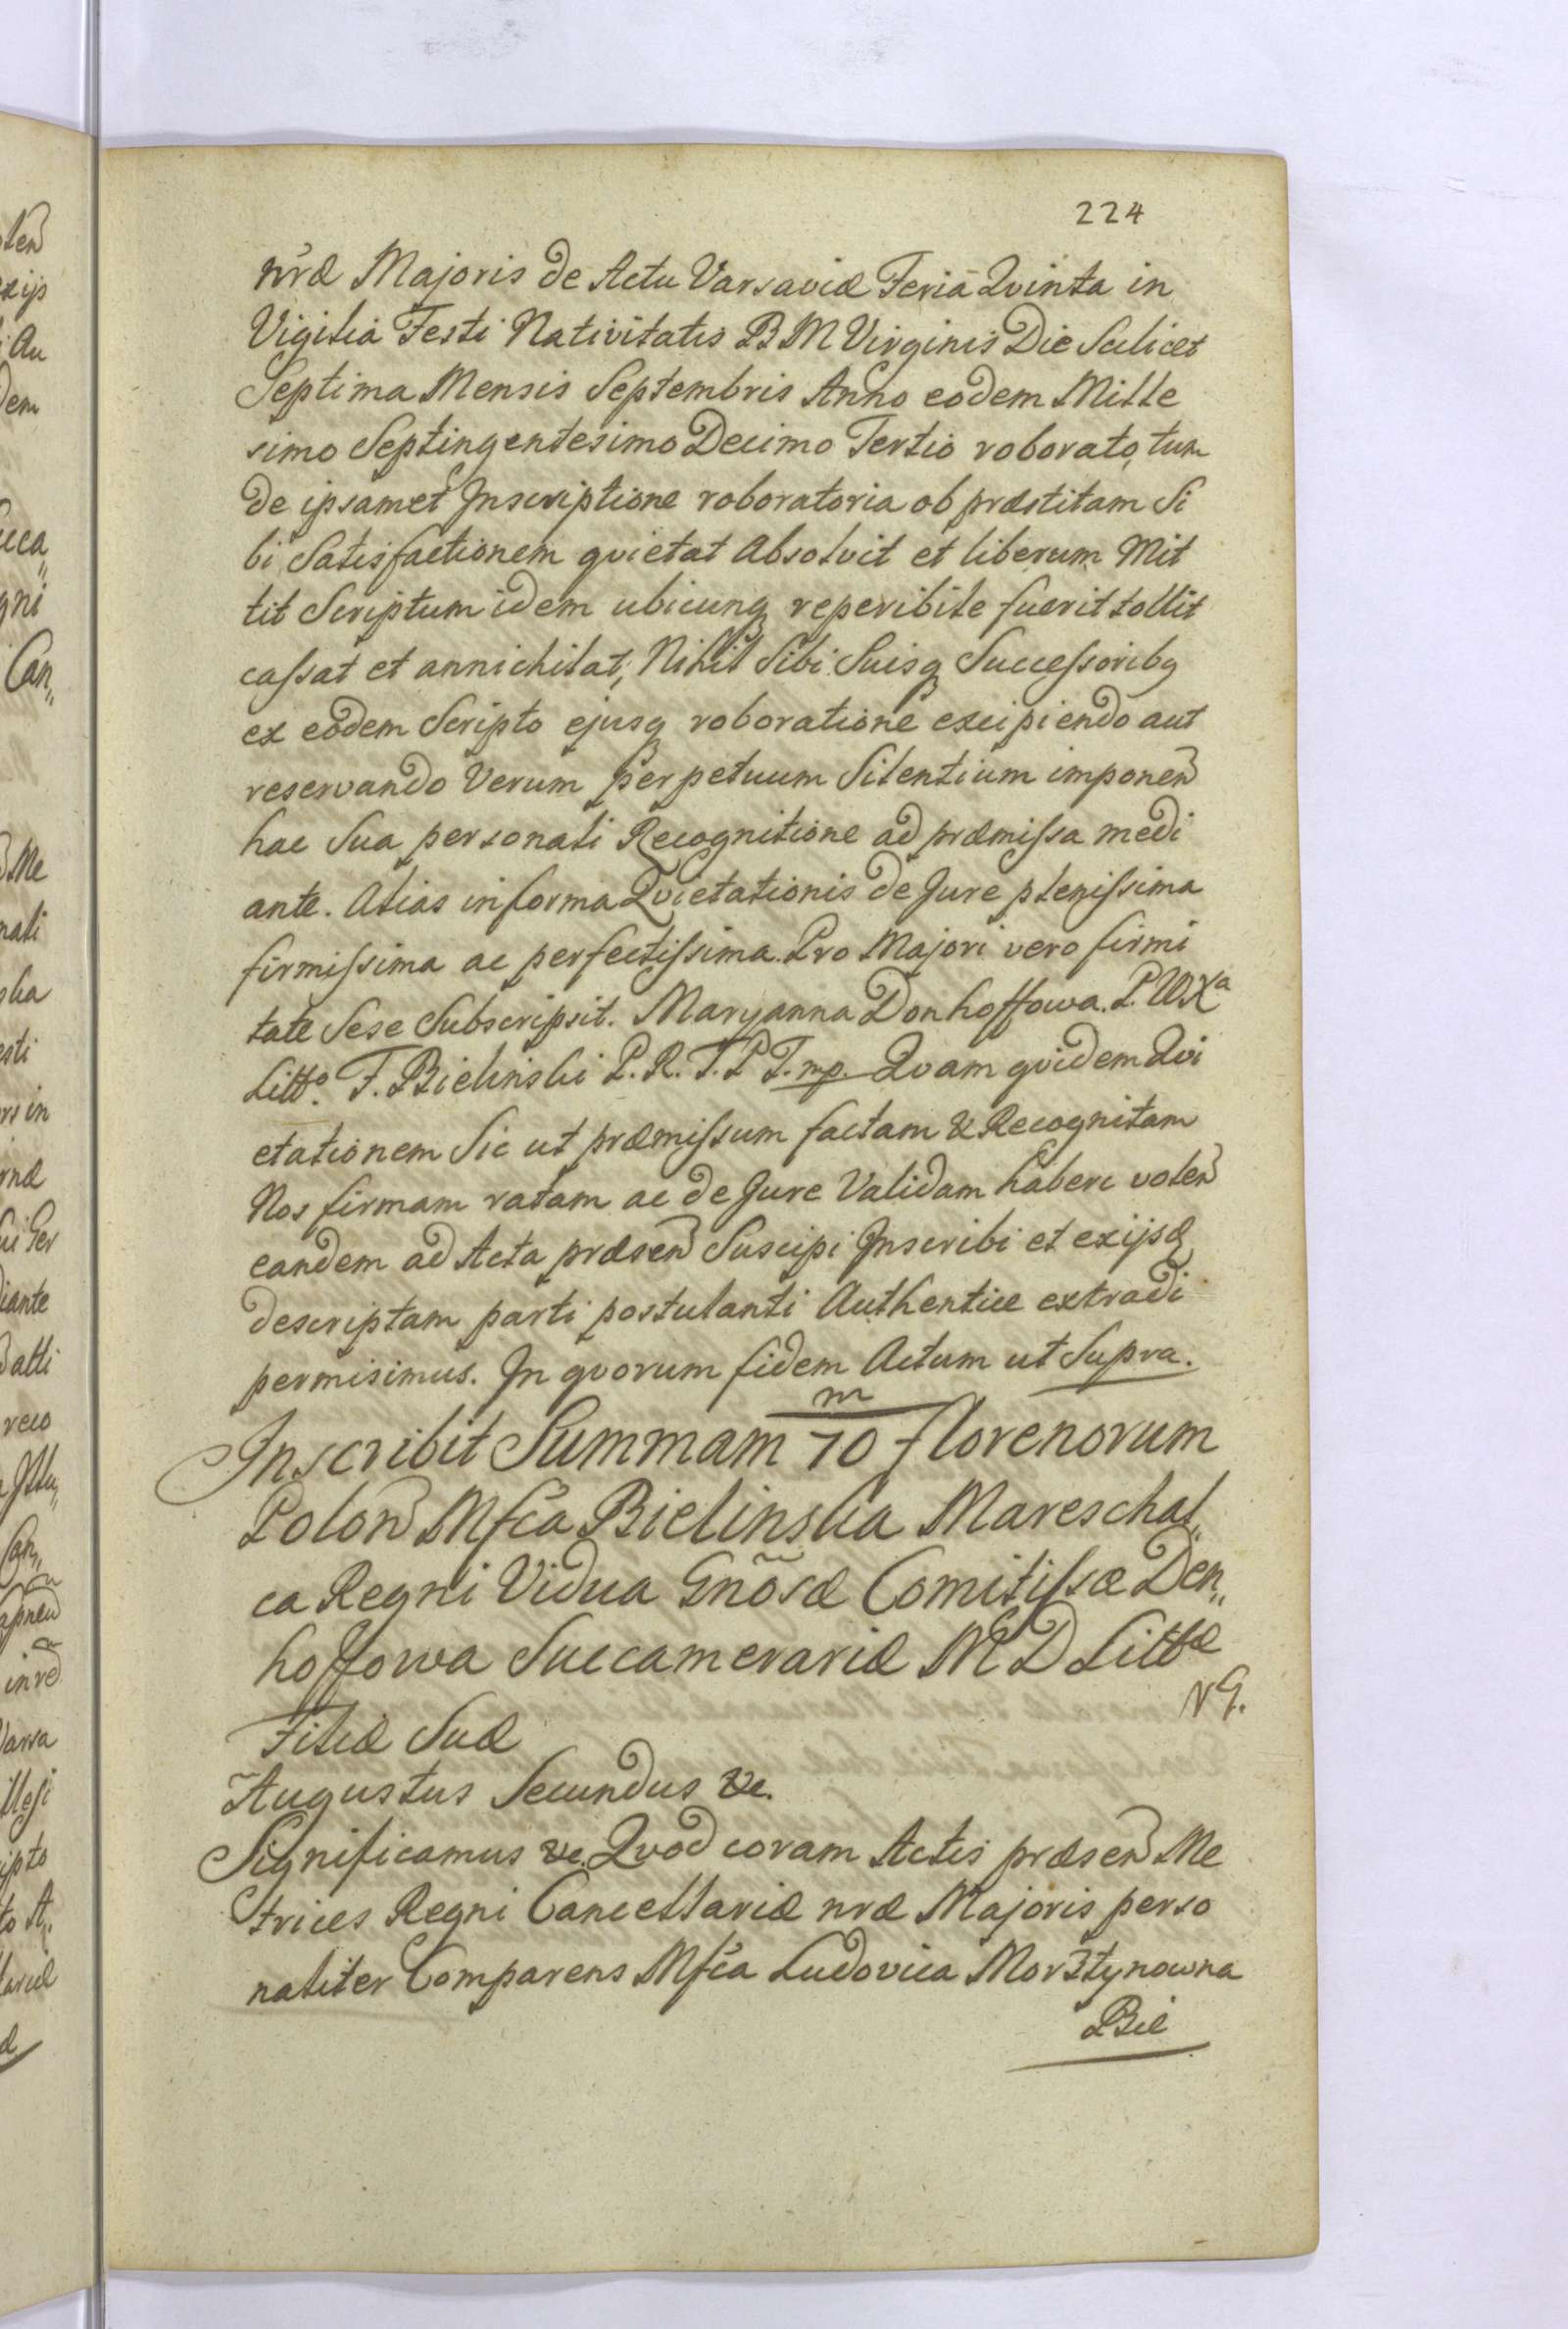 224
nr̃æ Majoris de Actu Varsaviæ Feria Qvinta in
Vigilia Festi Nativitatis B M Virginis Die Scilicet
Septima Mensis Septembris Anno eodem Mille
simo Septingentesimo Decimo Tertio roborato, tum
de ipsamet Inscriptione roboratoria ob præstitam Si
bi Satisfactionem qvietat Absolvit et liberum Mit
tit Scriptum idem ubicunq reperibile fuerit tollit
cassat et annichilat, Nihil Sibi Suisq Successoribq
ex eodem Scripto ejusq roboratione excipiendo aut
reservando Verum perpetuum Silentium imponen
hac Sua personali Recognitione ad præmissa medi
ante. Alias in forma Qvietationis de Jure plenissima
firmissima ac perfectissima. Pro Majori vero firmi
tate Sese Subscripsit. Maryanna Donhoffowa. P. W X a
Litto. F. Bielinski P. R. T. P T. mp. Qvam qvidem Qvi
etationem Sic ut præmissum factam & Recognitam
Nos firmam ratam ac de Jure Validam haberi volen
eandem ad Acta præsen Suscipi Inscribi et ex ijsq
descriptam parti postulanti Authentice extradi
permisimus. In qvorum fidem Actum ut Supra.
Inscribit Summam 70 m Florenorum
Polon Mfca Bielinska Mareschal„
ca Regni Vidua Gnõsæ Comitissæ Den„
hoffowa Succamerariæ M D Littæ
Filiæ Suæ
Augustus Secundus &c.
Significamus &c. Qvod coram Actis præsen Me
trices Regni Cancellariæ nræ Majoris perso
naliter Comparens Mfca Ludovica Morsztynowna
Bie